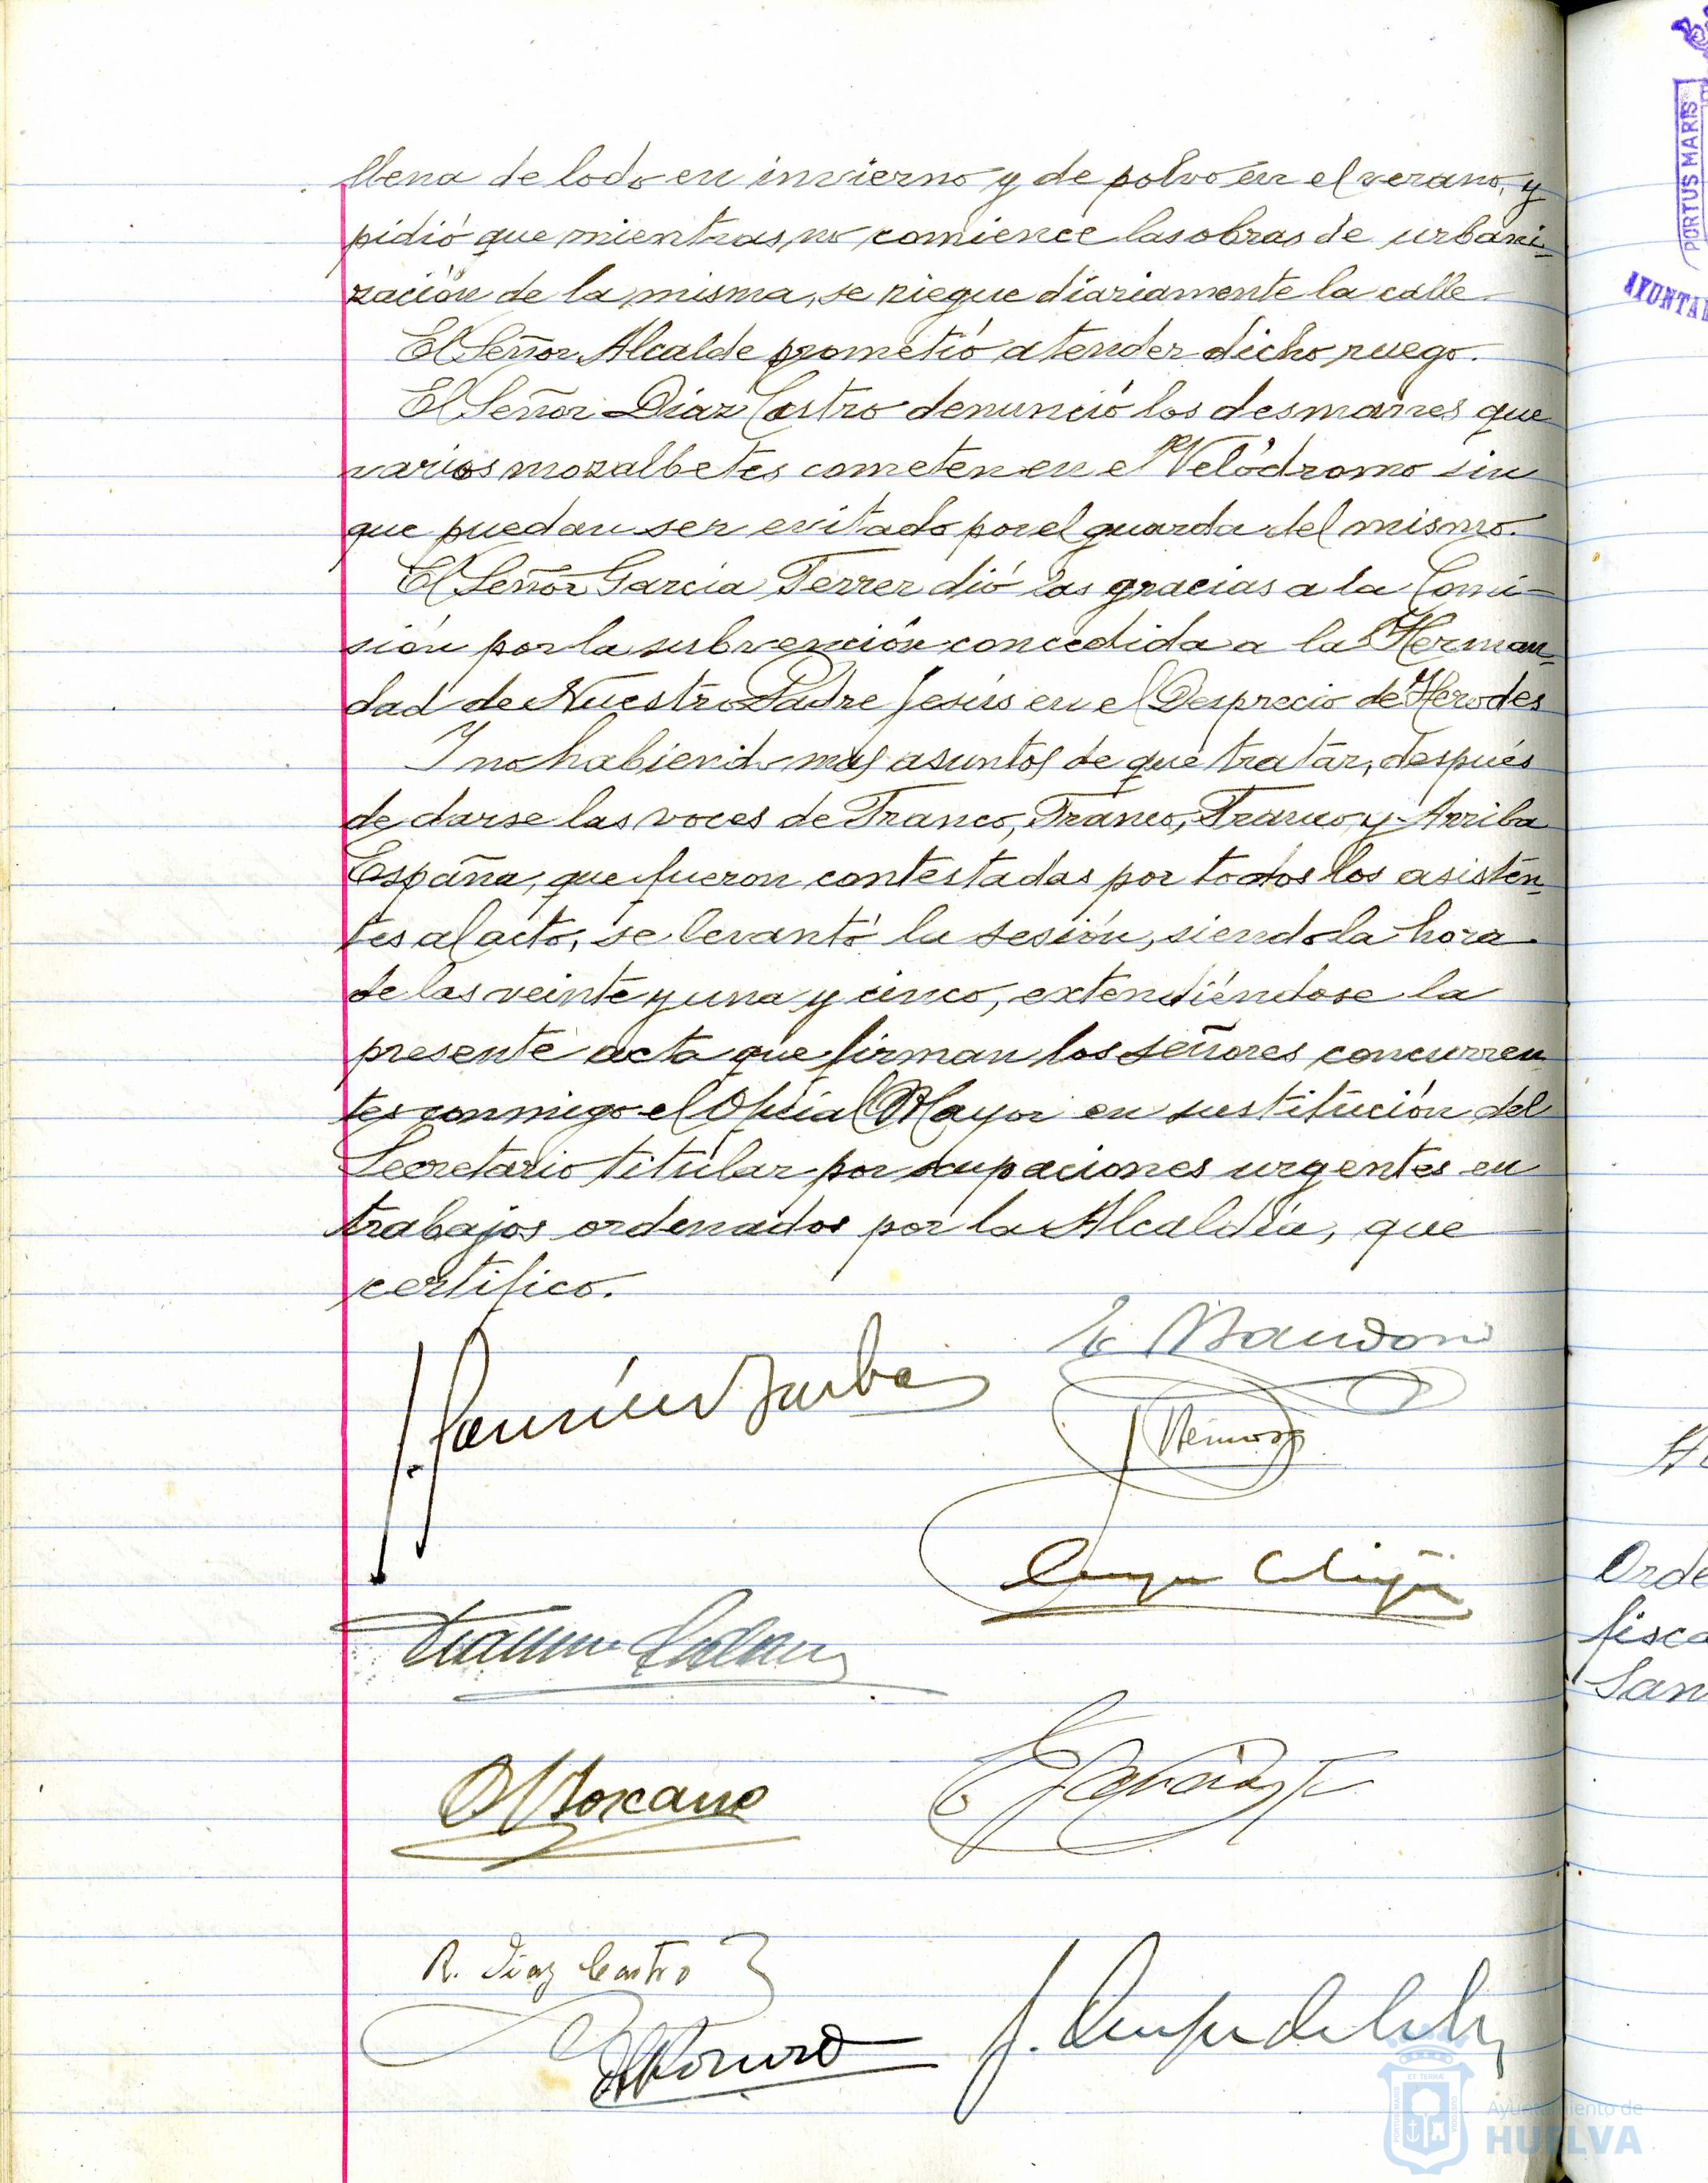 llena de lodo en invierno y de polvo en el verano, y
pidió que mientras, no comience las obras de urbani-
zación de la misma, se riegue diariamente la calle
El Señor Alcalde prometió atender dicho ruego.
El Señor Díaz Castro denunció los desmanes que
varios mozalbetes cometen en el Velódromo sin
que puedan ser evitado por el guarda del mismo.
El Señor García Ferrer dió las gracias a la Comi-
sión por la subvención concedida a la Herman-
dad de Nuestro Padre Jesús en el Desprecio de Herodes
Y no habiendo mas asuntos de que tratar, después
de darse las voces de Franco, Franco, Franco, y Arriba
España, que fueron contestadas por todos los asisten-
tes al acto, se levantó la sesión, siendo la hora
de las veinte y una y cinco, extendiéndose la
presente acta que firman los señores concurren-
tes conmigo el Oficial Mayor en sustitución del
Secretario titular por ocupaciones urgentes en
trabajos ordenados por la Alcaldía, que
certifico.
R. Díaz Castro
PORTUS MARIS
AYUNTA
Orde
fisca
San
Ayuntamiento de
HUELVA